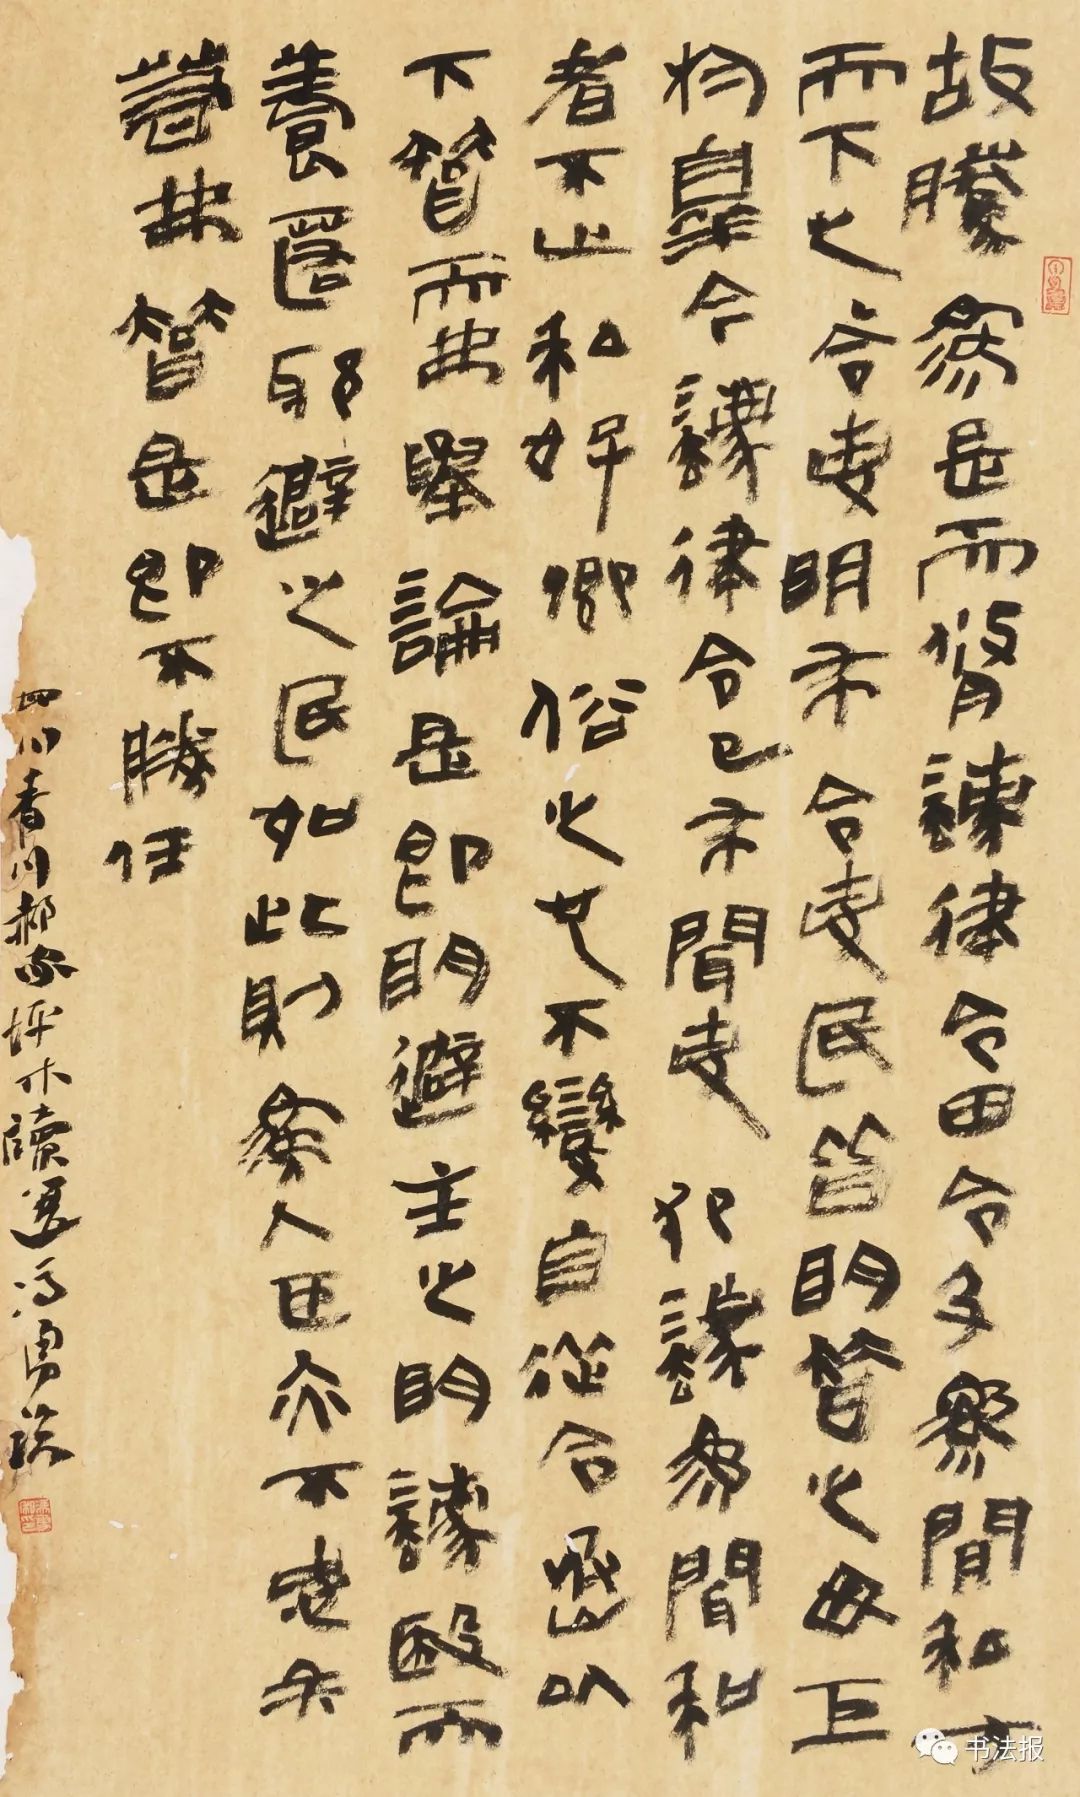 故騰為是而脩灋律令田令及為閒私方
而下之令吏明布令吏民皆明智之毋巨
於辠今灋律令已布聞吏犯灋為閒私
者不止私好鄉俗之心不變自從令丞以
下智而弗舉論是即明避主之明灋殹而
養匿邪避之民如此則為人臣亦不忠矣
若弗智是即不勝任
四川青川郝家坪木牘選馮勇
书法报